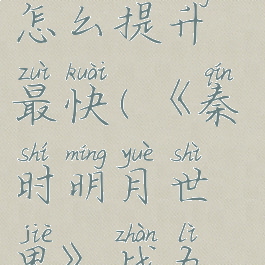 怎么提升
zuì kuài qín
最快(《秦
shí míng yuè shì
时明月世
jiè zhàn lì
界》战力